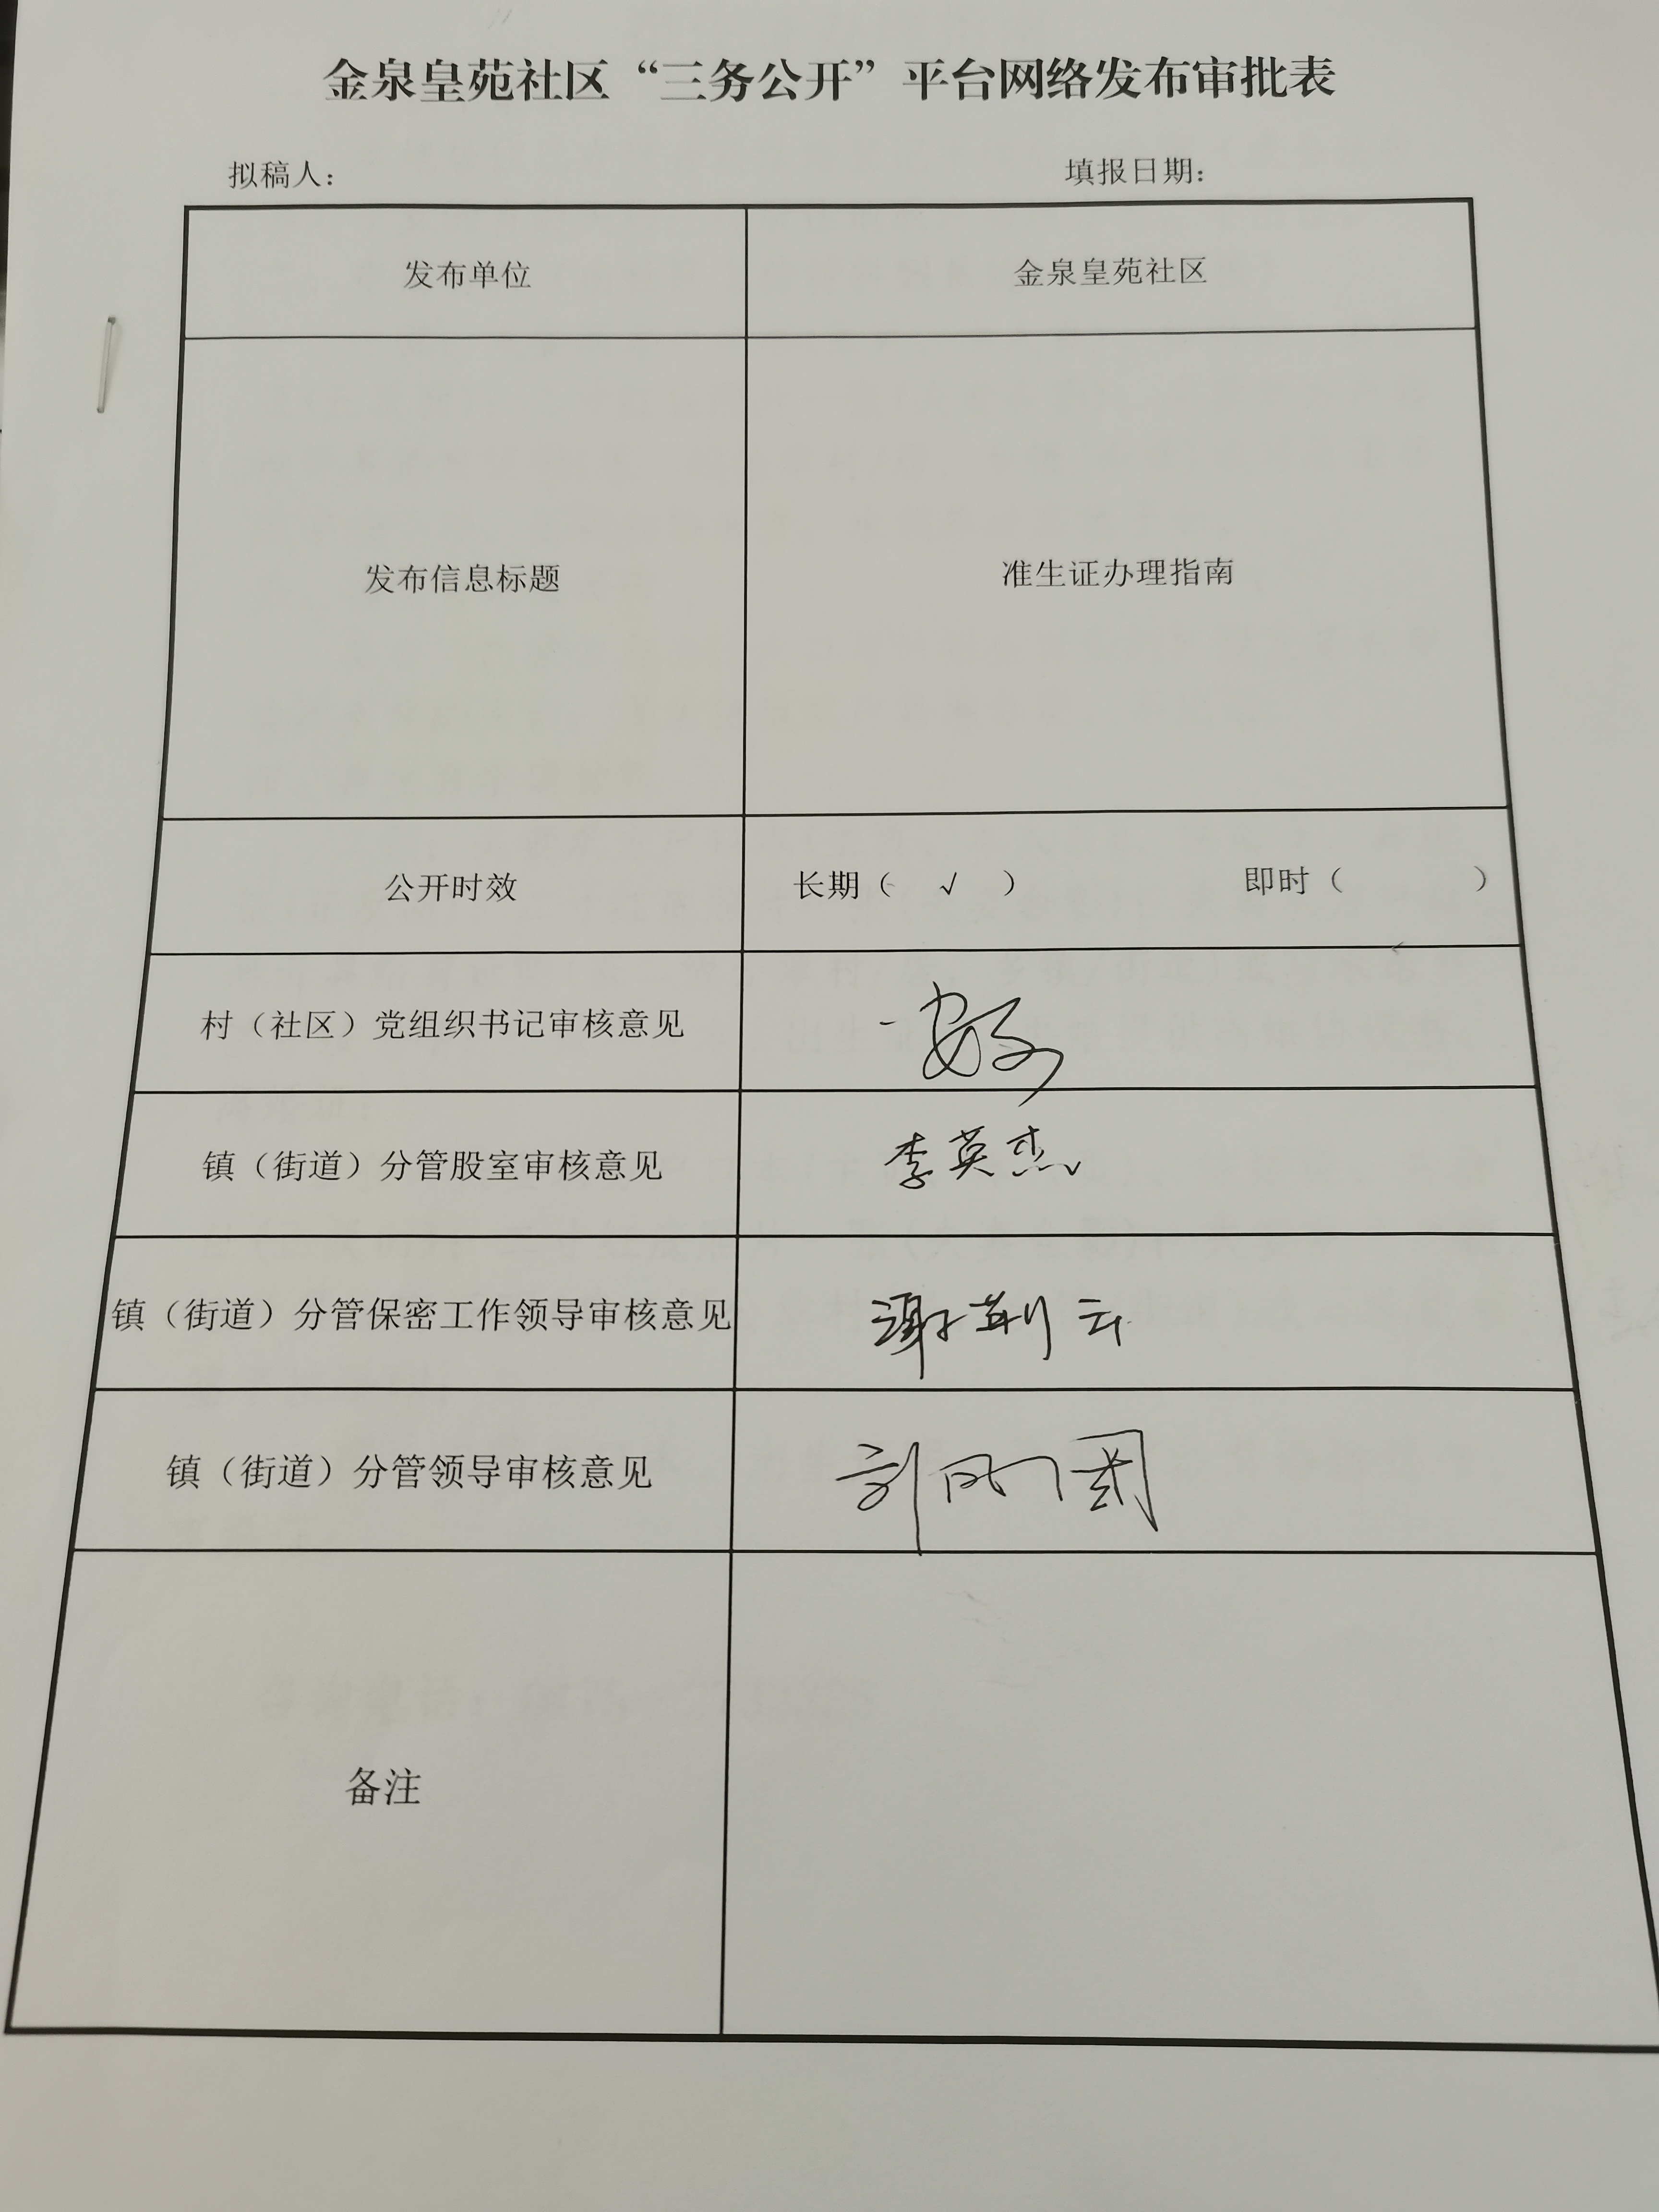 金泉皇苑社区“三务公开”平台网络发布审批表
拟稿人： 填报日期：
发布单位 金泉皇苑社区
发布信息标题 准生证办理指南
公开时效 长期（ √ ） 即时（ ）
村（社区）党组织书记审核意见
镇（街道）分管股室审核意见 李英杰
镇（街道）分管保密工作领导审核意见 谢荆云
镇（街道）分管领导审核意见 刘凤国
备注